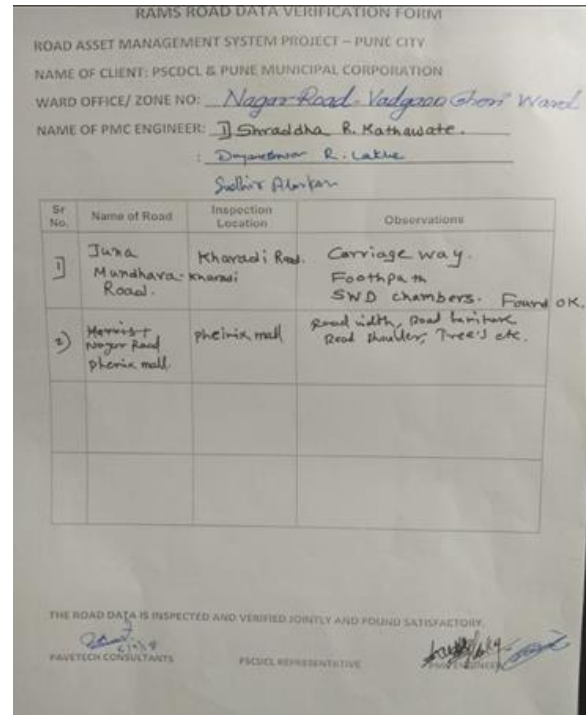 RAMS ROAD DATA VERIFICATION FORM
ROAD ASSET MANAGEMENT SYSTEM PROJECT – PUNE CITY
NAME OF CLIENT: PSCDCL & PUNE MUNICIPAL CORPORATION
WARD OFFICE/ ZONE NO: Nagar Road - Vadgaon Sheri Ward
NAME OF PMC ENGINEER: 1] Shraddha R. Kathawate.
: R. Lakhe
Sudhir
Sr No. Name of Road Inspection Location Observations
1] Juna Mundhava - Kharadi Road. Kharadi Road. Carriage way.
Foothpath
SWD chambers. Found OK.
2) Nagar Road phenix mall. pheinix mall Road width, Road
Road shoulder, Tree's etc.
THE ROAD DATA IS INSPECTED AND VERIFIED JOINTLY AND FOUND SATISFACTORY.
PAVETECH CONSULTANTS PSCDCL REPRESENTATIVE PMC ENGINEER